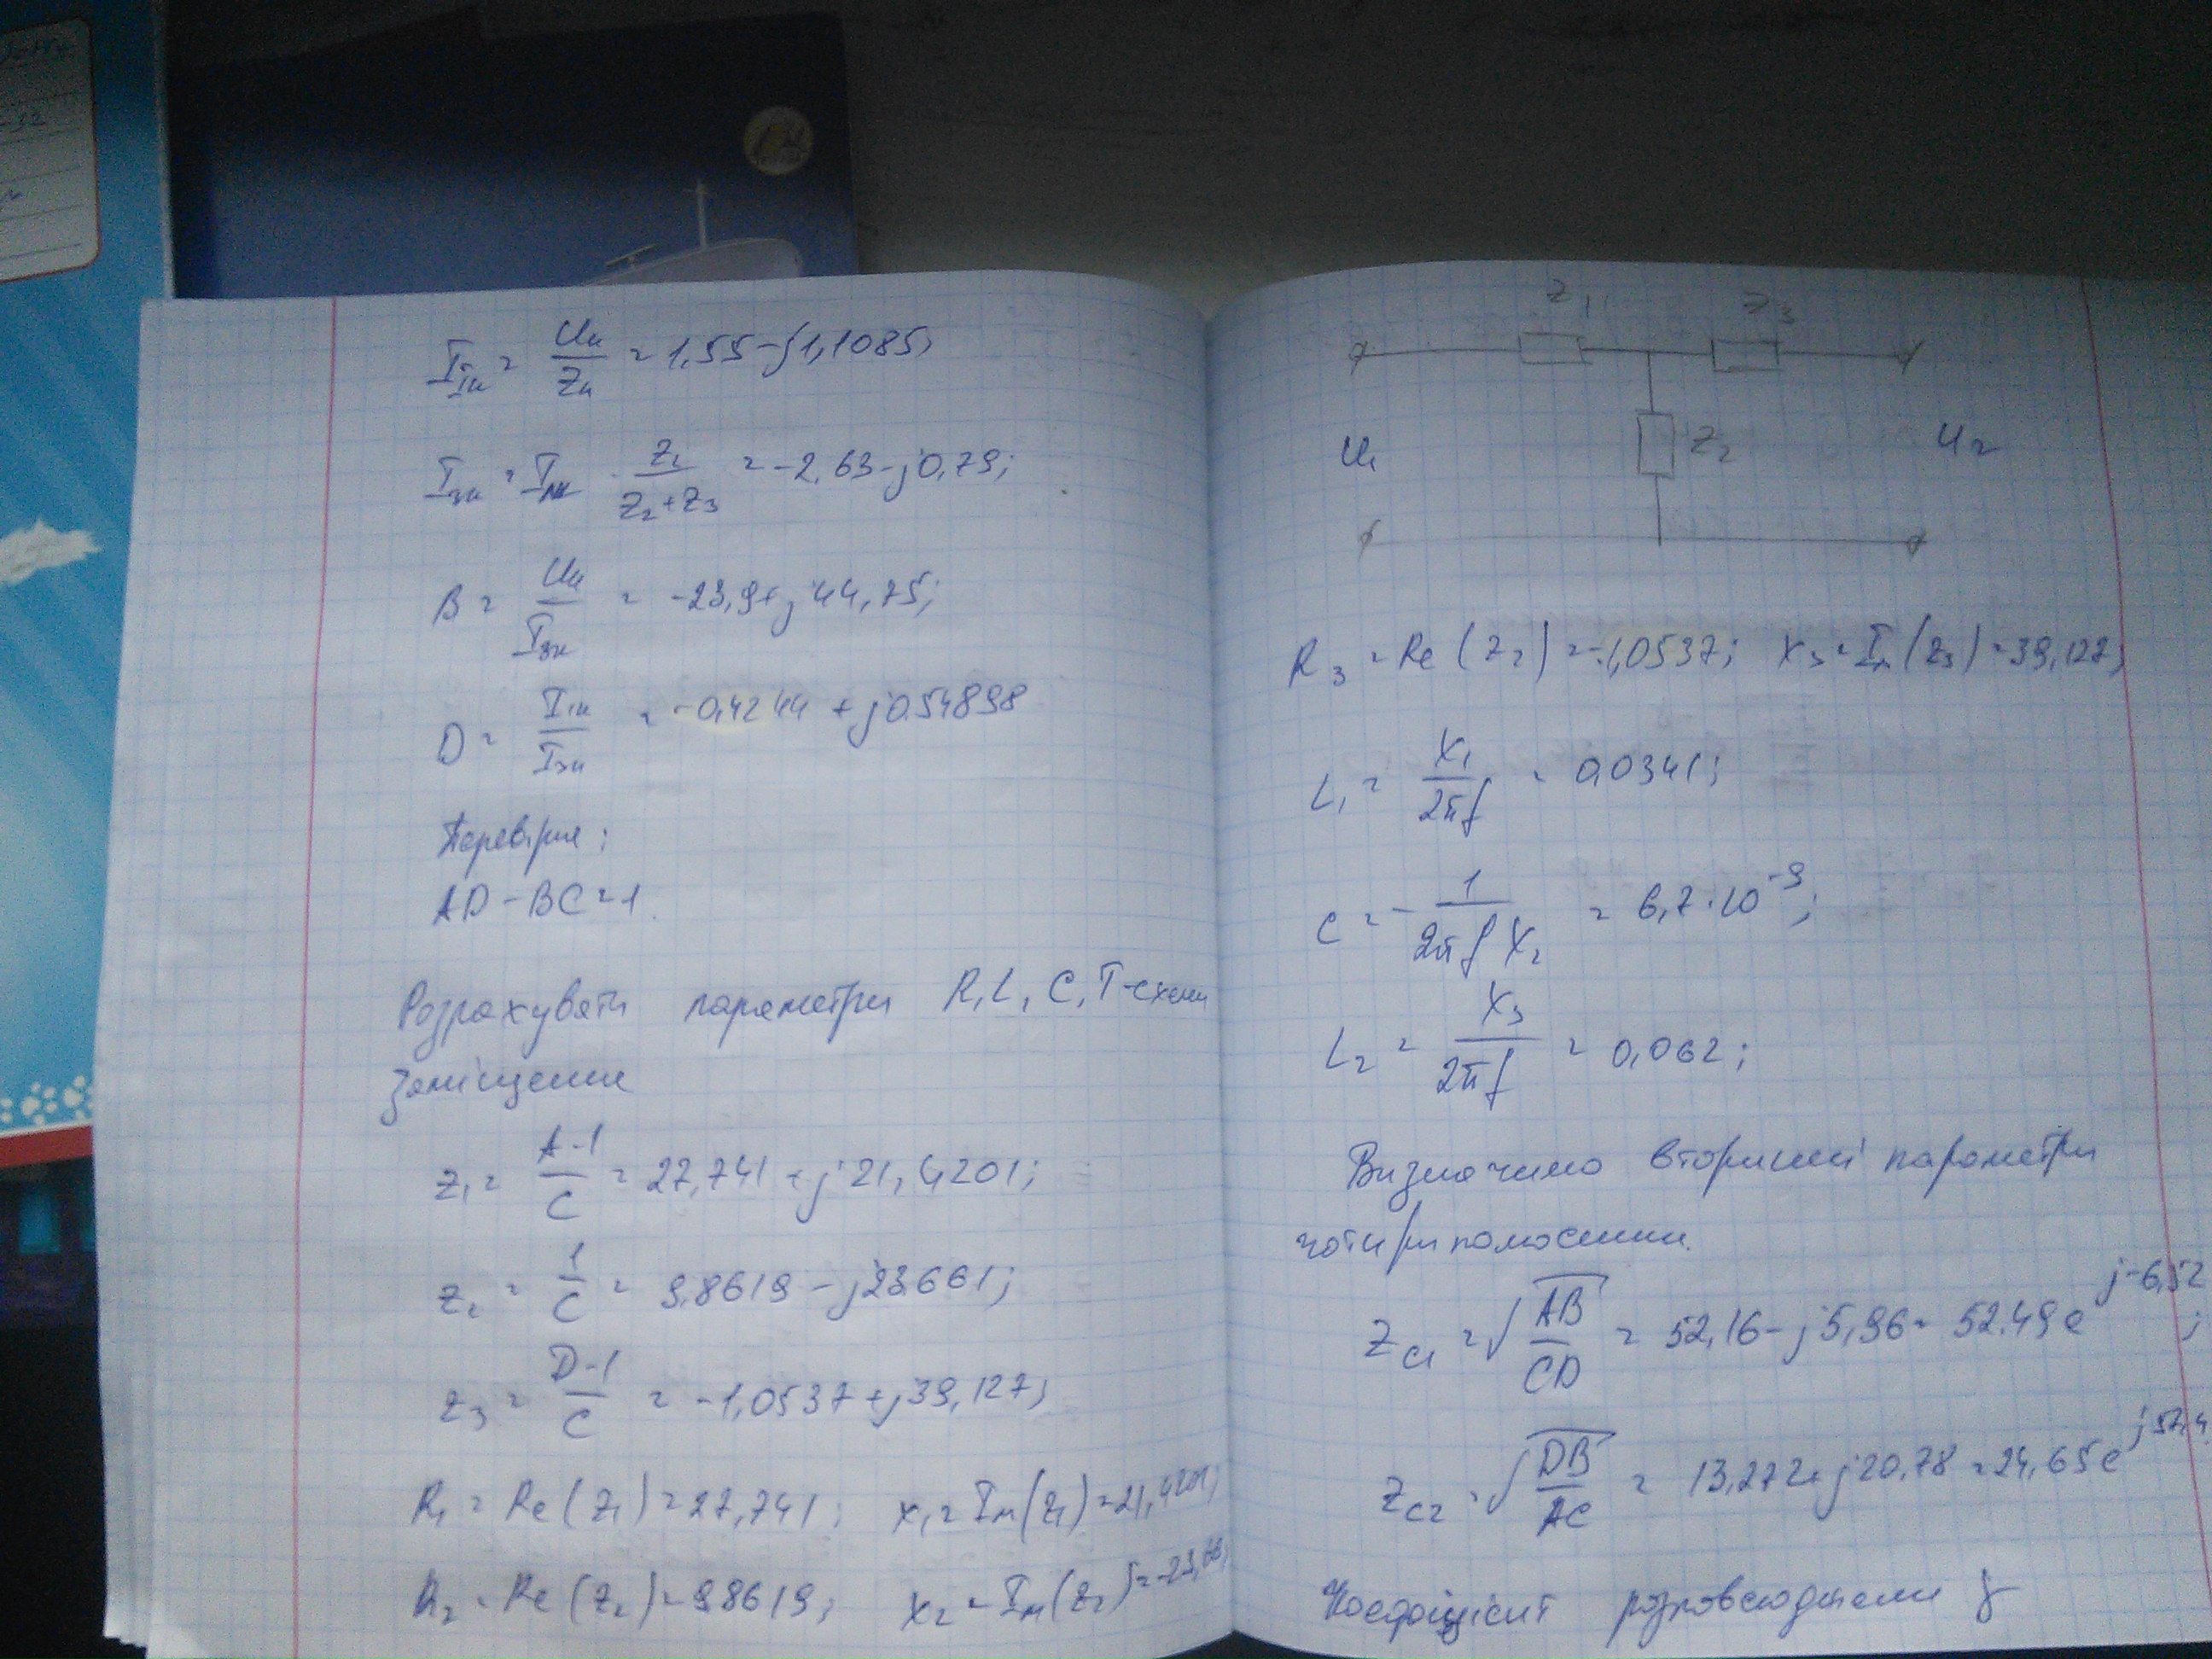 I₁ₖ = Uₖ/Zₖ = 1,55-j1,1085;
I₃ₖ = I₁ₖ · Z₂/(Z₂+Z₃) = -2,63-j0,79;
B = Uₖ/I₃ₖ = -23,9+j44,75;
D = I₁ₖ/I₃ₖ = -0,4244 + j0.54898
Перевірка:
AD-BC=1.
Розрахувати параметри R, L, C, T-схеми
заміщення
Z₁ = (A-1)/C = 27,741 + j21,4201;
Z₂ = 1/C = 9,8619 - j23.661;
Z₃ = (D-1)/C = -1,0537+j39,127;
R₁ = Re(Z₁) = 27,741; X₁ = Im(Z₁) = 21,4201;
R₂ = Re(Z₂) = 9,8619; X₂ = Im(Z₂) = -23,66;
Z₁ Z₃
U₁ Z₂ U₂
R₃ = Re(Z₂) = -1,0537; X₃ = Im(Z₃) = 39,127;
L₁ = X₁/2πf = 0,0341;
C = -1/2πfX₂ = 6,7·10⁻⁹;
L₂ = X₃/2πf = 0,062;
Визначимо вторинні параметри
чотириполюсника.
Z_C1 = √(AB/CD) = 52,16-j5,96 = 52.49e^(j-6,52);
Z_C2 = √(DB/AC) = 13,272+j20,78 = 24,65e^(j57,4
Коефіцієнт розповсюдження γ